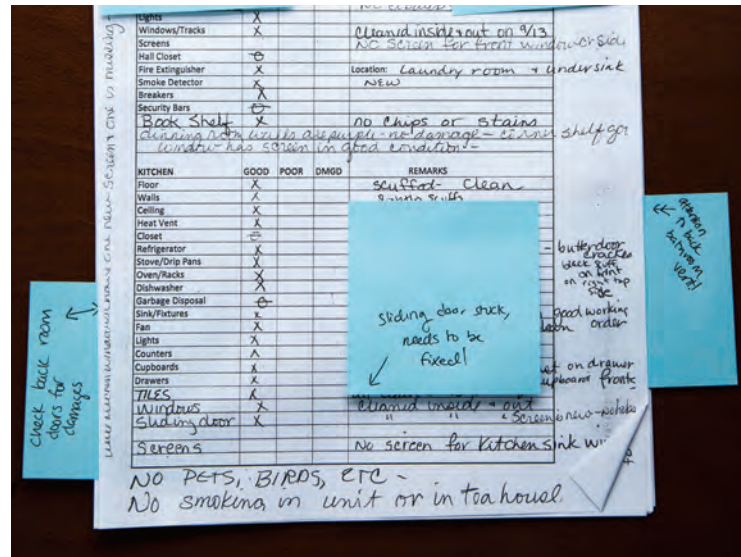 Lights X
Windows/Tracks X Cleanid inside & out on 9/13
Screens NO Screen for front window
Hall Closet
Fire Extinguisher X Location: Laundry room & undersink
Smoke Detector X NEW
Breakers X
Security Bars
Book Shelf X no chips or stains
no damage
window has screen in good condition -
KITCHEN GOOD POOR DMGD REMARKS
Floor X scuffed- Clean
Walls X
Ceiling X
Heat Vent X
Closet
Refrigerator X - butterdoor
cracked
Stove/Drip Pans X black
on front
Oven/Racks X on right top
side
Dishwasher X
Garbage Disposal
Sink/Fixtures X good working
Fan X order
Lights X
Counters
Cupboards X on drawer
Drawers X fronts
TILES X
Windows X Cleanid inside & out
Sliding door X " " " Screen is new
Screens No screen for Kitchen sink
NO PETS, BIRDS, ETC -
No smoking in unit or in
Sliding door stuck,
needs to be
fixed!
check back room
doors for
damages
attention
to back
bathroom
vent!